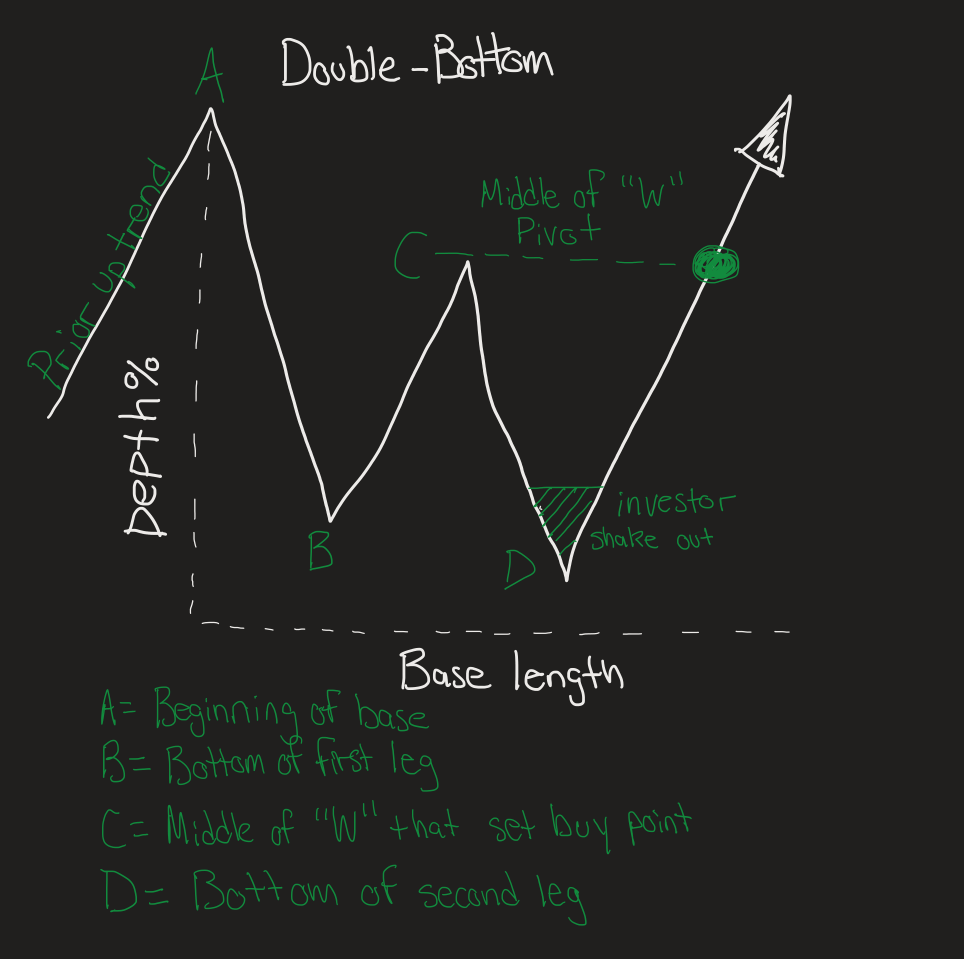 Double-Bottom
A
Prior uptrend
Middle of "W"
Pivot
C
Depth%
B
investor
shake out
D
Base length
A= Beginning of base
B= Bottom of first leg
C= Middle of "W" that set buy point
D= Bottom of second leg